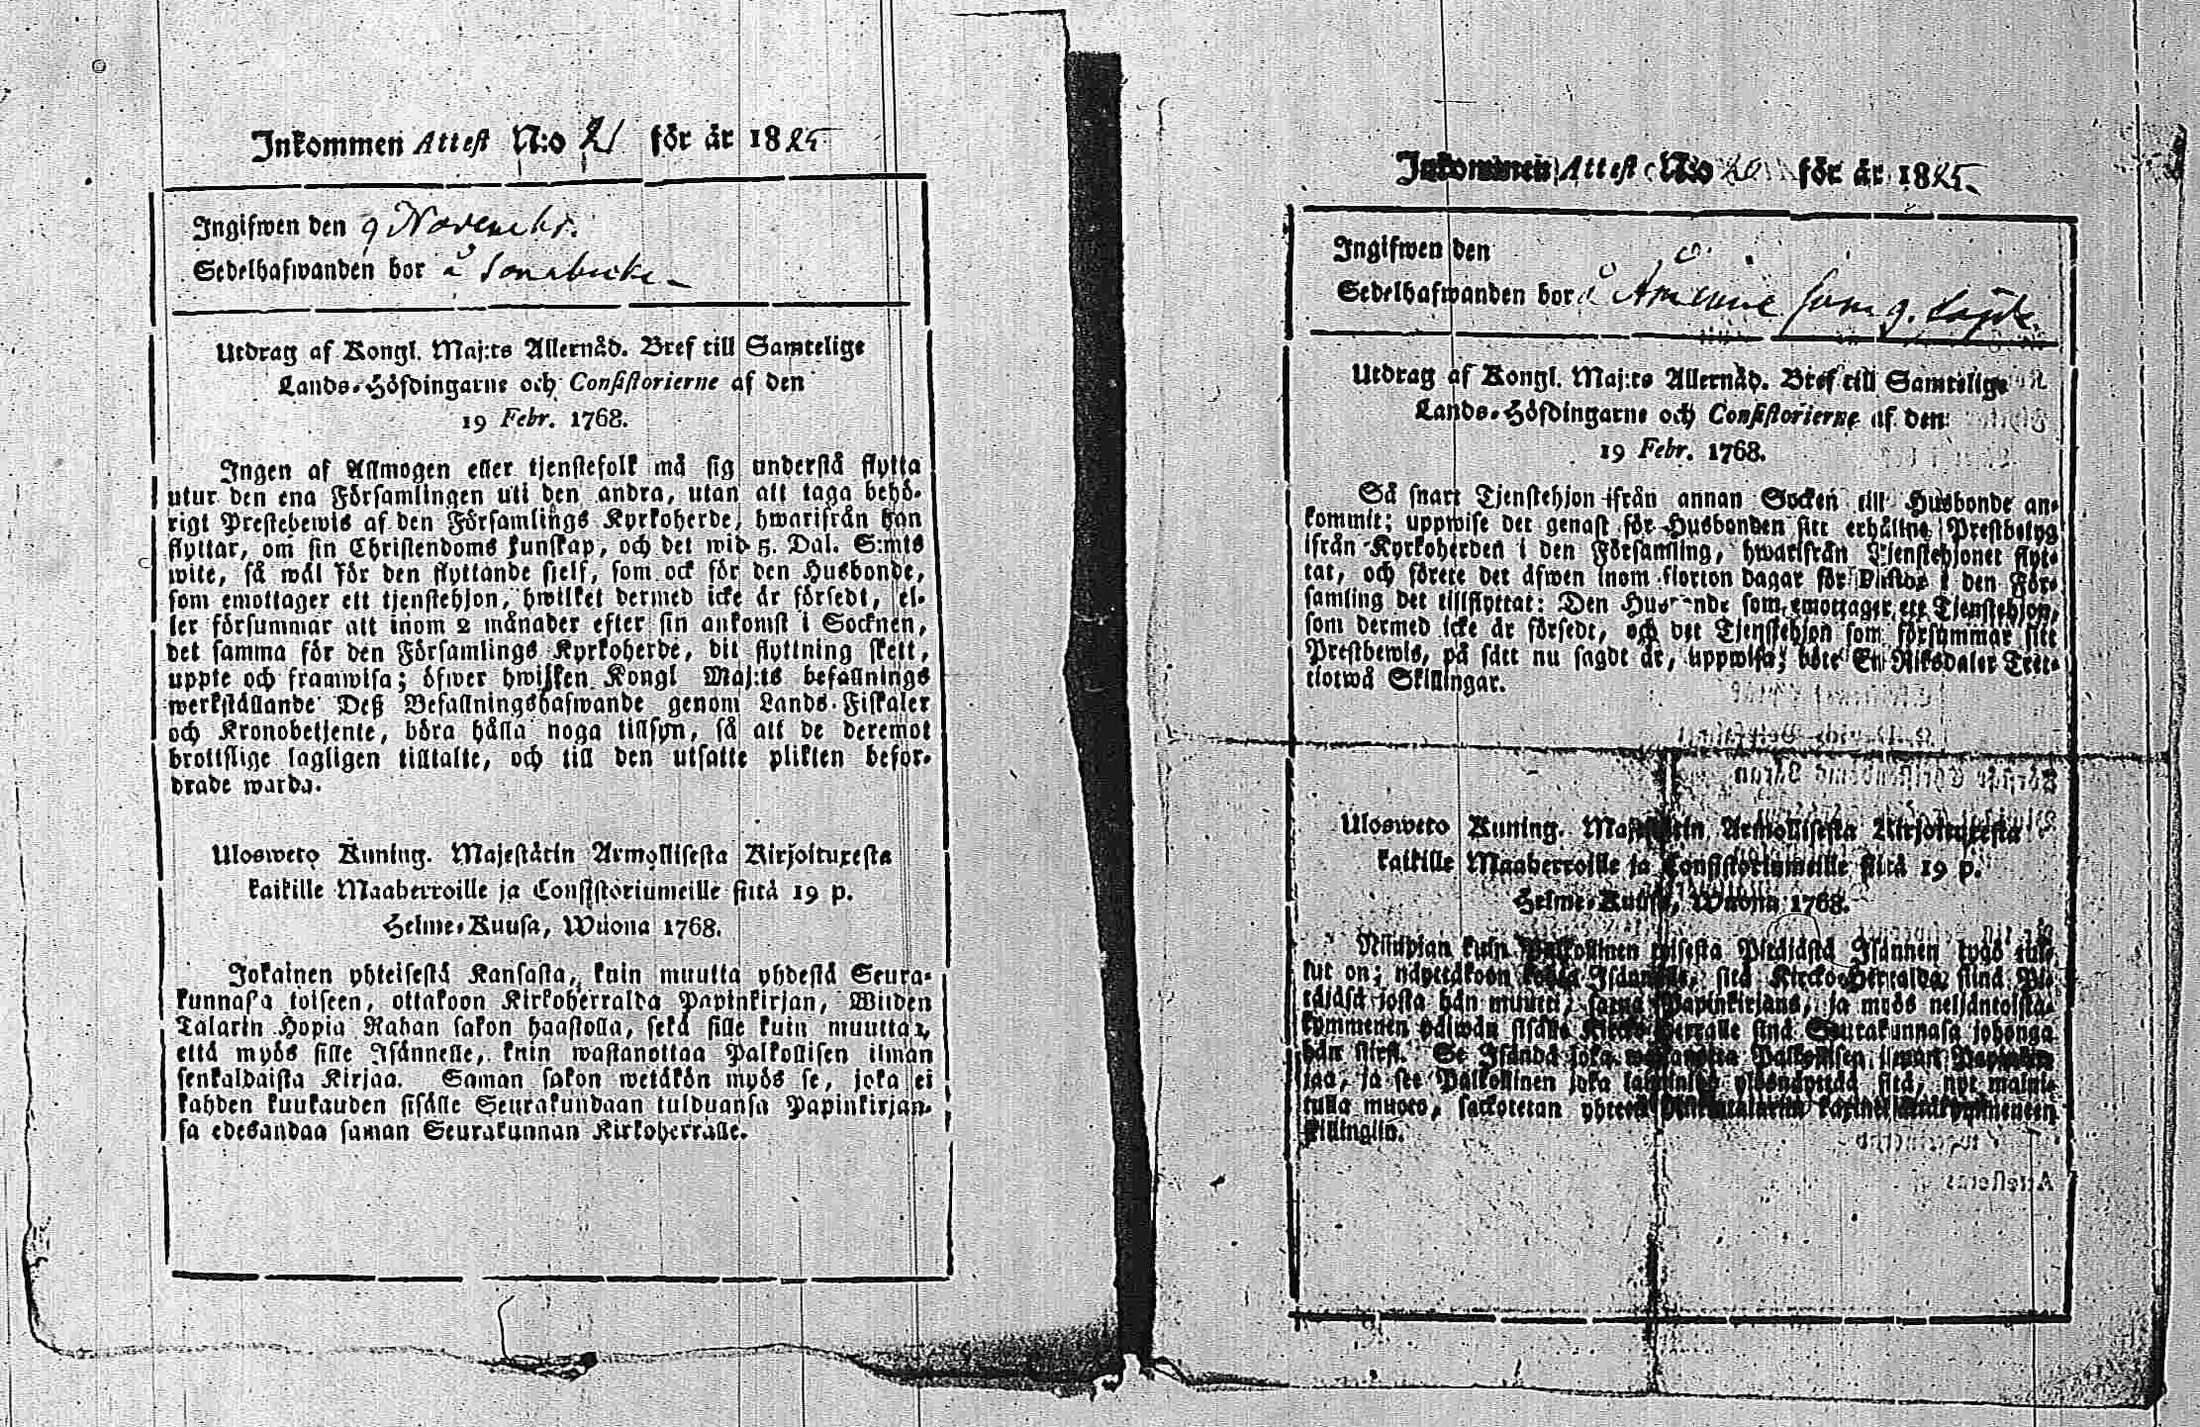 Inkommen Attest N:o 21 för år 1825
Ingifwen den 9 Novembr.
Sedelhafwanden bor å
Utdrag af Kongl. Maj:ts Allernåd. Bref till Samtelige
Lands-Höfdingarne och Consistorierne af den
19 Febr. 1768.
Ingen af Allmogen eller tjenstefolk må sig understå flytta
utur den ena Församlingen uti den andra, utan att taga behö-
rigt Prestebewis af den Församlings Kyrkoherde, hwarifrån han
flyttar, om sin Christendoms kunskap, och det wid 5. Dal. S:mts
wite, så wäl för den flyttande sjelf, som ock för den Husbonde,
som emottager ett tjenstehjon, hwilket dermed icke är försedt, el-
ler försummar att inom 2 månader efter sin ankomst i Socknen,
det samma för den Församlings Kyrkoherde, dit flyttning skett,
uppte och framwisa; öfwer hwilken Kongl Maj:ts befallnings
werkställande Deß Befallningshafwande genom Lands-Fiskaler
och Kronobetjente, böra hålla noga tillsyn, så att de deremot
brottslige lagligen tilltalte, och till den utsatte plikten befor-
drade warda.
Ulosweto Kuning. Majestätin Armollisesta Kirjoituxesta
kaikille Maaherroille ja Consistoriumeille siitä 19 p.
Helme-Kuusa, Wuona 1768.
Jokainen yhteisestä Kansasta, kuin muutta yhdestä Seura-
kunnasa toiseen, ottakoon Kirkoherralda Papinkirjan, Wiiden
Talarin Hopia Rahan sakon haastolla, sekä sille kuin muuttaa,
että myös sille Isännelle, kuin wastanottaa Palkollisen ilman
senkaldaista Kirjaa. Saman sakon wetäkön myös se, joka ei
kahden kuukauden sisälle Seurakundaan tulduansa Papinkirjan-
sa edesandaa saman Seurakunnan Kirkoherralle.
Inkommen Attest N:o 20 för år 1825.
Ingifwen den
Sedelhafwanden bor å
Utdrag af Kongl. Maj:ts Allernåd. Bref till Samtelige
Lands-Höfdingarne och Consistorierne af den
19 Febr. 1768.
Så snart Tjenstehjon ifrån annan Socken till Husbonde an-
kommit; uppwise det genast för Husbonden sitt erhållne Prestbetyg
ifrån Kyrkoherden i den Församling, hwarifrån Tjenstehjonet flyt-
tat, och förete det äfwen inom fiorton dagar för Pastor i den För-
samling det tillflyttat: Den Husbonde som emottager ett Tjenstehjon,
som dermed icke är försedt, och det Tjenstehjon som försummar sitt
Prestbewis, på sätt nu sagdt är, uppwisa; böte En Riksdaler Tret-
tiotwå Skillingar.
Ulosweto Kuning. Majestätin Armollisesta Kirjoituxesta
kaikille Maaherroille ja Consistoriumeille siitä 19 p.
Helme-Kuusa, Wuona 1768.
Niinpian kuin Palkollinen toisesta Pitäjästä Isännen tygö tul-
lut on; näyttäkoon Isännelle, sitä Kircko-Herralda siinä Pi-
täjäsä josta hän muutti, saatua Papinkirjans, ja myös neljäntoista-
kymmenen päiwän sisälle Kircko-Herralle siinä Seurakunnasa johonga
hän siirsi. Se Isändä joka wastanotta Palkollisen ilman
jaa, ja see Palkollinen joka laiminlyö ylösnäyttää sitä, nyt maini-
tulla muoto, sackotetan yhteen Riikintalarin
killingiin.